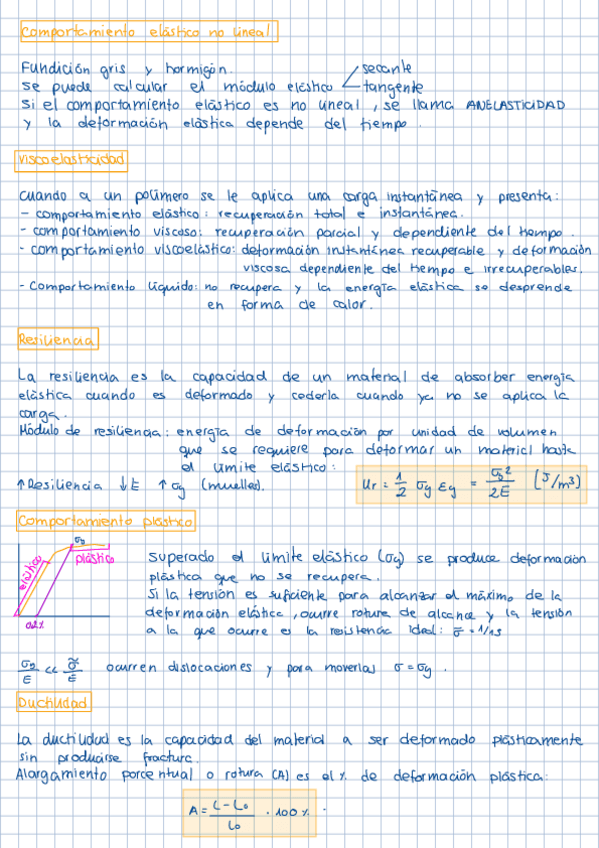 Comportamiento elástico no lineal
Fundición gris y hormigón.
Se puede calcular el módulo elástico < secante
tangente
Si el comportamiento elástico es no lineal, se llama ANELASTICIDAD
y la deformación elástica depende del tiempo.
Viscoelasticidad
Cuando a un polímero se le aplica una carga instantánea y presenta:
- comportamiento elástico: recuperación total e instantánea.
- comportamiento viscoso: recuperación parcial y dependiente del tiempo.
- comportamiento viscoelástico: deformación instantánea recuperable y deformación
viscosa dependiente del tiempo e irrecuperables.
- Comportamiento líquido: no recupera y la energía elástica se desprende
en forma de calor.
Resiliencia
La resiliencia es la capacidad de un material de absorber energía
elástica cuando es deformado y cederla cuando ya no se aplica la
carga.
Módulo de resiliencia: energía de deformación por unidad de volumen
que se requiere para deformar un material hasta
el límite elástico:
↑ Resiliencia ↓E ↑σy (muelles).
Ur = 1/2 σy εy = σy²/2E [J/m³]
Comportamiento plástico
σy
elástico
plástico
0,2%
Superado el límite elástico (σy) se produce deformación
plástica que no se recupera.
Si la tensión es suficiente para alcanzar el máximo de la
deformación elástica, ocurre rotura de alcance y la tensión
a la que ocurre es la resistencia ideal: σ̃ = 1/15
σy/E << σ̃/E ocurren dislocaciones y para moverlas σ = σy.
Ductilidad
La ductilidad es la capacidad del material a ser deformado plásticamente
sin producirse fractura.
Alargamiento porcentual o rotura (A) es el % de deformación plástica:
A = L - L₀/L₀ · 100 %